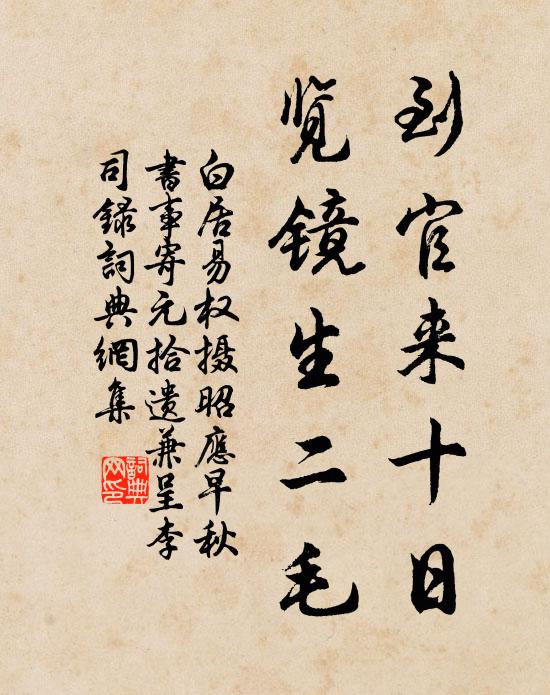 到官来十日
览镜生二毛
白居易权摄昭應早秋
書事寄元拾遗兼呈李
司録詞典網集
詞典網印